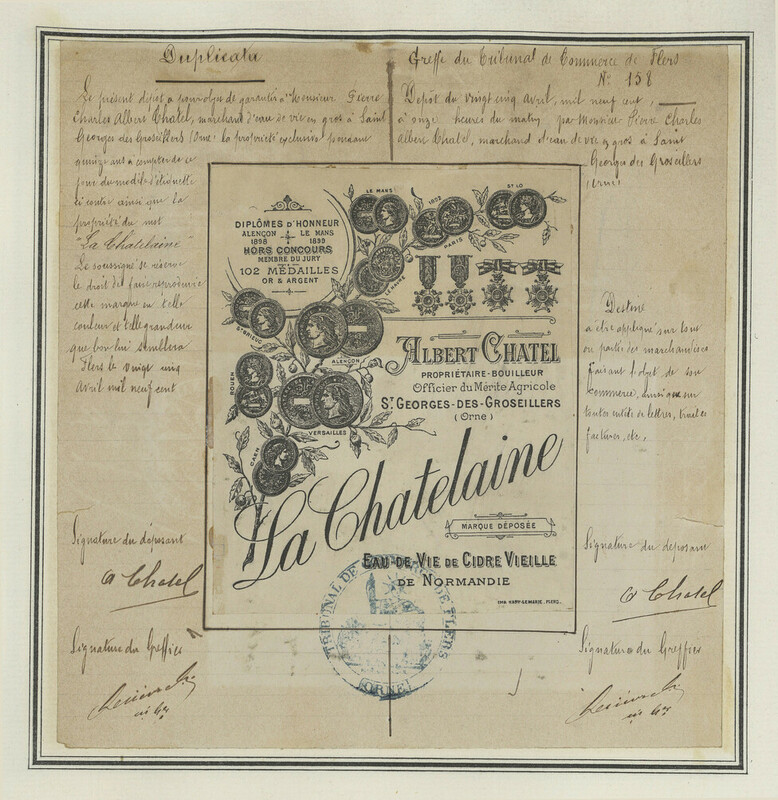 Duplicata
Le présent dépôt a pour objet de garantir à Monsieur Pierre
Charles Albert Chatel, marchand d'eau de vie en gros à Saint
Georges des Groseillers (Orne) la propriété exclusive pendant
quinze ans à compter de ce
jour du modèle d'étiquette
ci contre ainsi que la
propriété du mot
"La Chatelaine"
Le soussigné se réserve
le droit de faire reproduire
cette marque en telle
couleur et telle grandeur
que bon lui semblera
Flers le vingt cinq
Avril mil neuf cent
Signature du déposant
A Chatel
Signature du Greffier
Greffe du Tribunal de Commerce de Flers
N° 158
Dépôt du vingt cinq avril, mil neuf cent,
à onze heures du matin, par Monsieur Pierre Charles
Albert Chatel, marchand d'eau de vie en gros à Saint
Georges des Groseillers
(Orne)
Destiné
à être appliqué sur tout
ou partie des marchandises
faisant l'objet de son
commerce, ainsi que sur
toutes entête de lettres,
factures, etc,
Signature du déposant
A Chatel
Signature du Greffier
DIPLÔMES D'HONNEUR
ALENÇON LE MANS
1898 1899
HORS CONCOURS
MEMBRE DU JURY
102 MÉDAILLES
OR & ARGENT
LE MANS
1892
PARIS
ST LO
ST BRIEUC
ALENÇON
ROUEN
VERSAILLES
CAEN
ALBERT CHATEL
PROPRIÉTAIRE-BOUILLEUR
Officier du Mérite Agricole
ST GEORGES-DES-GROSEILLERS
(Orne)
La Chatelaine
MARQUE DÉPOSÉE
EAU-DE-VIE DE CIDRE VIEILLE
DE NORMANDIE
TRIBUNAL DE COMMERCE DE FLERS
(ORNE)